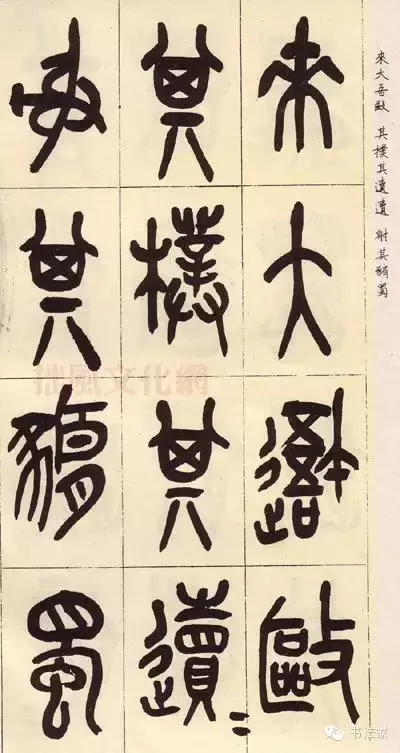 來大吾敺 其樸其遺遺 射其豬蜀
來大吾敺
其樸其遺=
射其豬蜀
拙風文化網
书法家